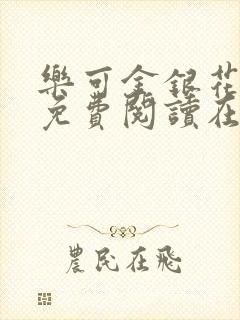 樂可金銀花
免費閱讀在
農民在飛